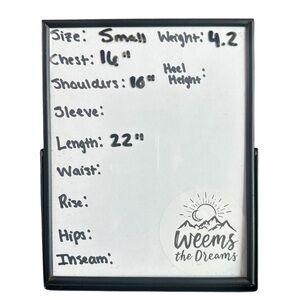 Size: Small Weight: 4.2
Chest: 16"
Shoulders: 16" Heel Height:
Sleeve:
Length: 22"
Waist:
Rise:
Hips:
Inseam:
Weems
the Dreams